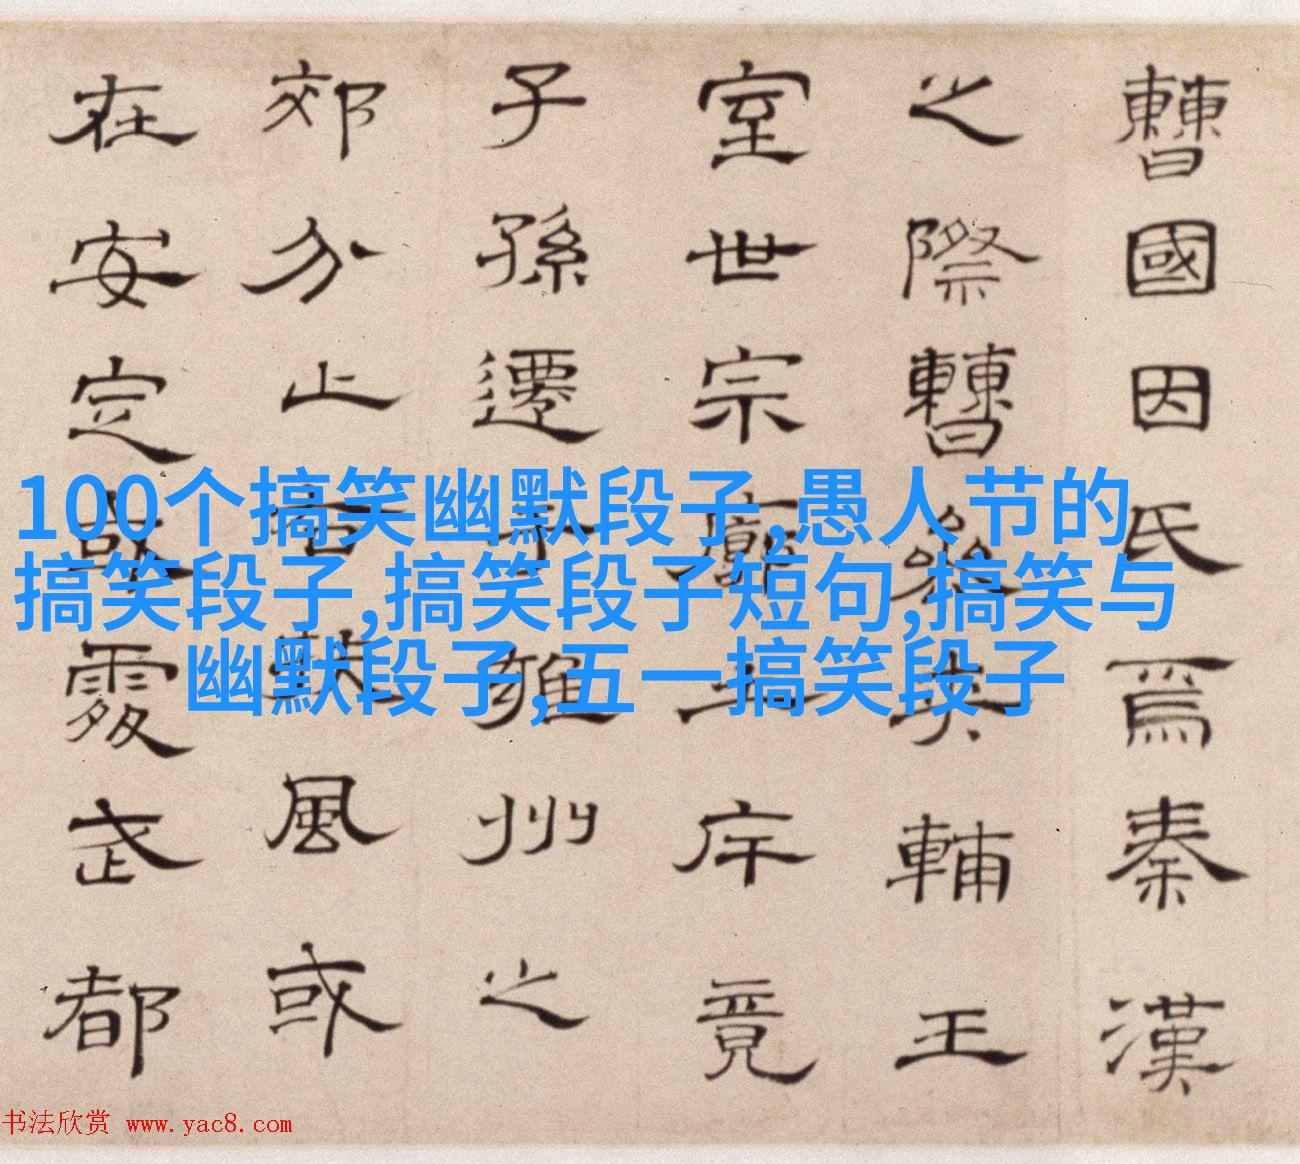 100个搞笑幽默段子,愚人节的
搞笑段子,搞笑段子短句,搞笑与
幽默段子,五一搞笑段子
曹國因氏焉秦漢
之際曹參夾輔王
室世宗廓土斥竟
子孫遷雍州之
郊分止風或
在安定或處武都
书法欣赏 www.yac8.com